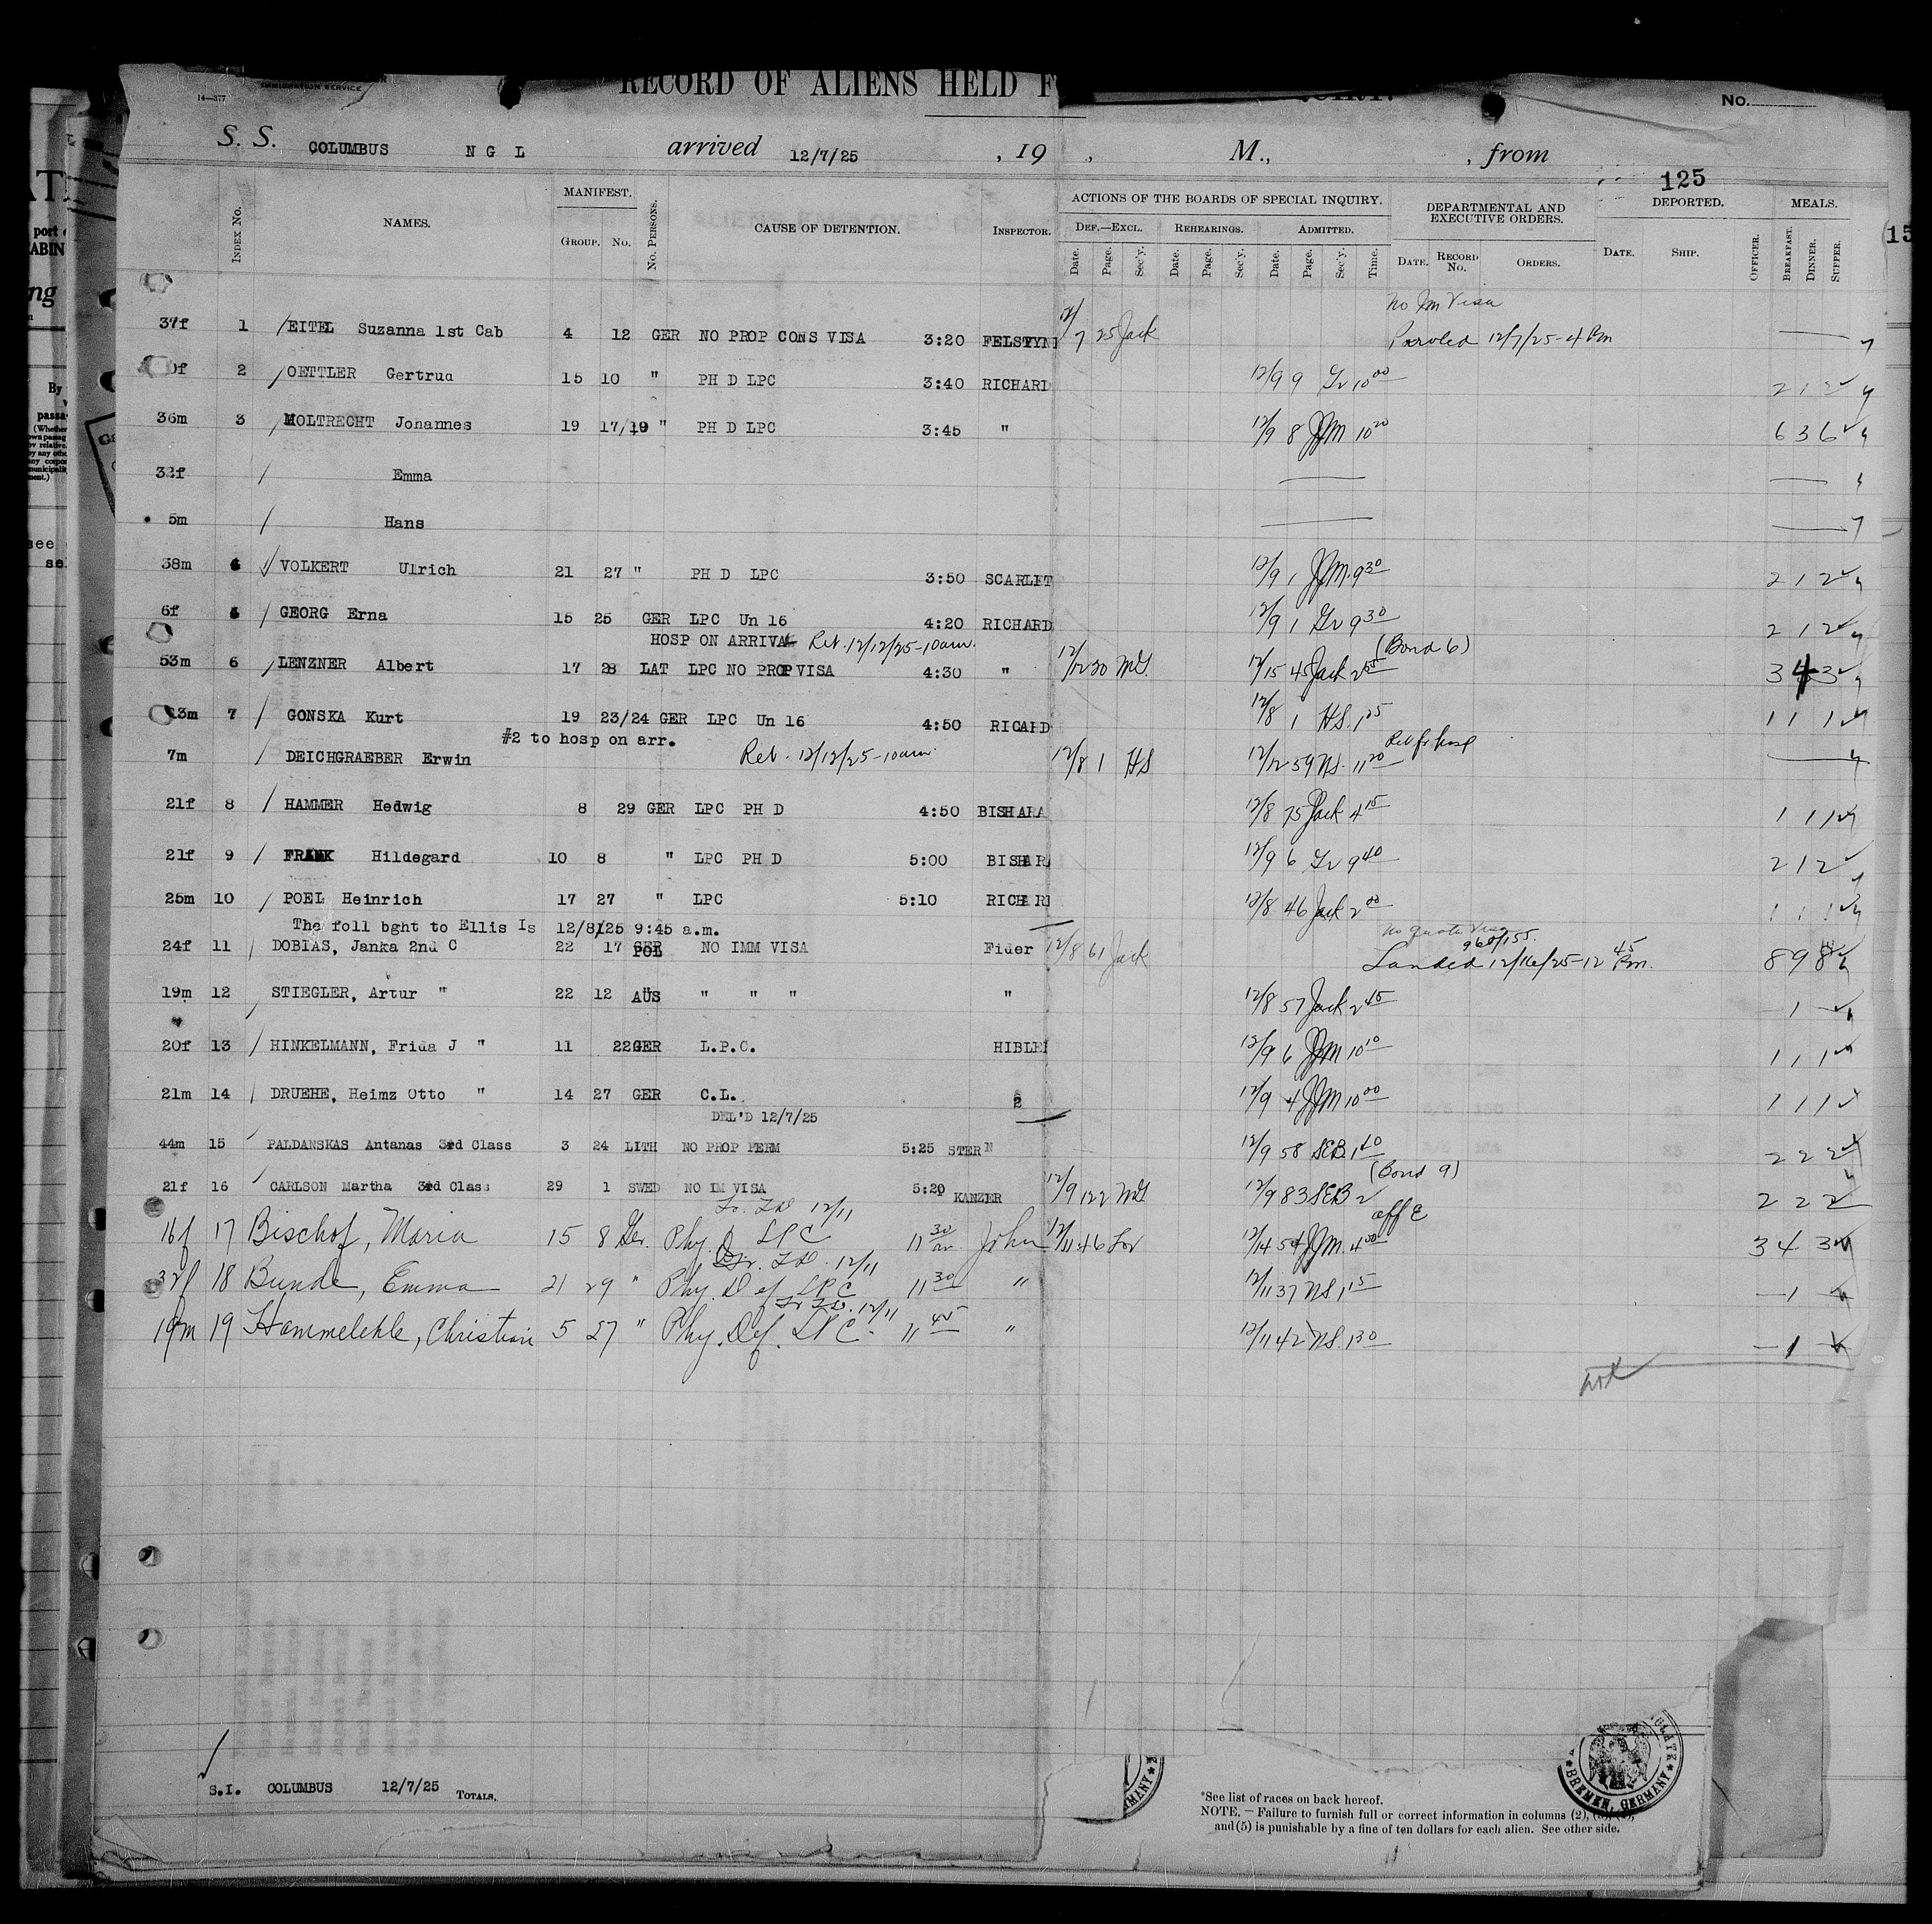 IMMIGRATION SERVICE
14—377
RECORD OF ALIENS HELD F
No.
S. S. COLUMBUS N G L arrived 12/7/25 , 19 , M., , from
125
MANIFEST. ACTIONS OF THE BOARDS OF SPECIAL INQUIRY. DEPARTMENTAL AND EXECUTIVE ORDERS. DEPORTED. MEALS.
INDEX No. NAMES. GROUP. No. No. PERSONS. CAUSE OF DETENTION. INSPECTOR. DEF.—EXCL. REHEARINGS. ADMITTED.
Date. Page. Sec'y. Date. Page. Sec'y. Date. Page. Sec'y. Time. DATE. RECORD No. ORDERS. DATE. SHIP. OFFICER. BREAKFAST. DINNER. SUPPER.
No Im Visa
37f 1 / EITEL Suzanna 1st Cab 4 12 GER NO PROP CONS VISA 3:20 12/7 25 Jack Paroled 12/7/25-4 Pm
2 / OETTLER Gertrud 15 10 " PH D LPC 3:40 RICHARD 12/9 9 Gv 10 00 2 1 2
36m 3 / MOLTRECHT Johannes 19 17/19 " PH D LPC 3:45 " 12/9 8 JJM 10 20 6 3 6
32f / Emma
5m / Hans
38m 4 / VOLKERT Ulrich 21 27 " PH D LPC 3:50 SCARLET 12/9 1 JJM 9 30 2 1 2
6f 5 / GEORG Erna 15 25 GER LPC Un 16 4:20 RICHARD 12/9 1 Gv 9 30 2 1 2
HOSP ON ARRIVAL Ret. 12/12/25-10am. (Bond 6)
53m 6 / LENZNER Albert 17 28 LAT LPC NO PROP VISA 4:30 " 12/12 30 MG. 12/15 45 Jack 2 55 3 4 3
13m 7 / GONSKA Kurt 19 23/24 GER LPC Un 16 4:50 RICAHD 12/8 1 HS. 1 25 1 1 1
#2 to hosp on arr. Ret. 12/12/25-10am. Ret fr hosp
7m / DEICHGRAEBER Erwin 12/8 1 HS 12/12 59 NS. 11 20
21f 8 / HAMMER Hedwig 8 29 GER LPC PH D 4:50 BISHARA 12/8 75 Jack 4 15 1 1 1
21f 9 / FRANK Hildegard 10 8 " LPC PH D 5:00 BISHAR 12/9 6 Gv 9 40 2 1 2
25m 10 / POEL Heinrich 17 27 " LPC 5:10 RICHAR 12/8 46 Jack 2 00 1 1 1
The foll bght to Ellis Is 12/8/25 9:45 a.m. No quota Visa
960/155.
24f 11 / DOBIAS, Janka 2nd C 22 17 POL NO IMM VISA Fider 12/8 61 Jack Landed 12/16/25-12 45 Pm. 8 9 8
19m 12 / STIEGLER, Artur " 22 12 AUS " " " " 12/8 57 Jack 2 45 — 1 —
20f 13 / HINKELMANN, Frida J " 11 22 GER L.P.C. HIBLE 12/9 6 JJM 10 10 1 1 1
21m 14 / DRUEHE, Heimz Otto " 14 27 GER C.L. 12/9 4 JJM 10 00 1 1 1
DEL'D 12/7/25
44m 15 PALDANSKAS Antanas 3rd Class 3 24 LITH NO PROP PERM 5:25 STERN 12/9 58 SEB 1 40 2 2 2
(Bond 9)
21f 16 CARLSON Martha 3rd Class 29 1 SWED NO IM VISA 5:20 KANZER 12/9 122 MG 12/9 83 SEB 2 2 2 2
12/11
16f 17 Bischof, Maria 15 8 Ger. Phy. D LPC 11 30 John 12/11 46 Lov 12/14 54 JJM. 4 00 3 4 3
12/11
32f 18 Bunde, Emma 21 29 " Phy. Def LPC 11 30 " 12/11 37 NS 1 15 — 1 —
12/11
19m 19 Hammelehle, Christian 5 27 " Phy. Def. LPC. 11 45 " 12/11 42 NS. 1 30 — 1 —
S.I. COLUMBUS 12/7/25 TOTALS.
*See list of races on back hereof.
NOTE. — Failure to furnish full or correct information in columns (2),
and (5) is punishable by a fine of ten dollars for each alien. See other side.
BREMEN, GERMANY